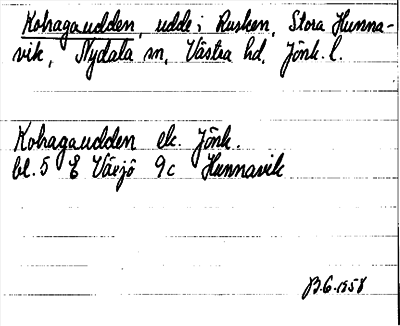 Kohagaudden, udde i Rusken, Stora Hunna-
vik, Nydala sn, Västra hd, Jönk. l.
Kohagaudden ek. Jönk.
bl. 5 E Växjö 9c Hunnavik
B.G. 1958